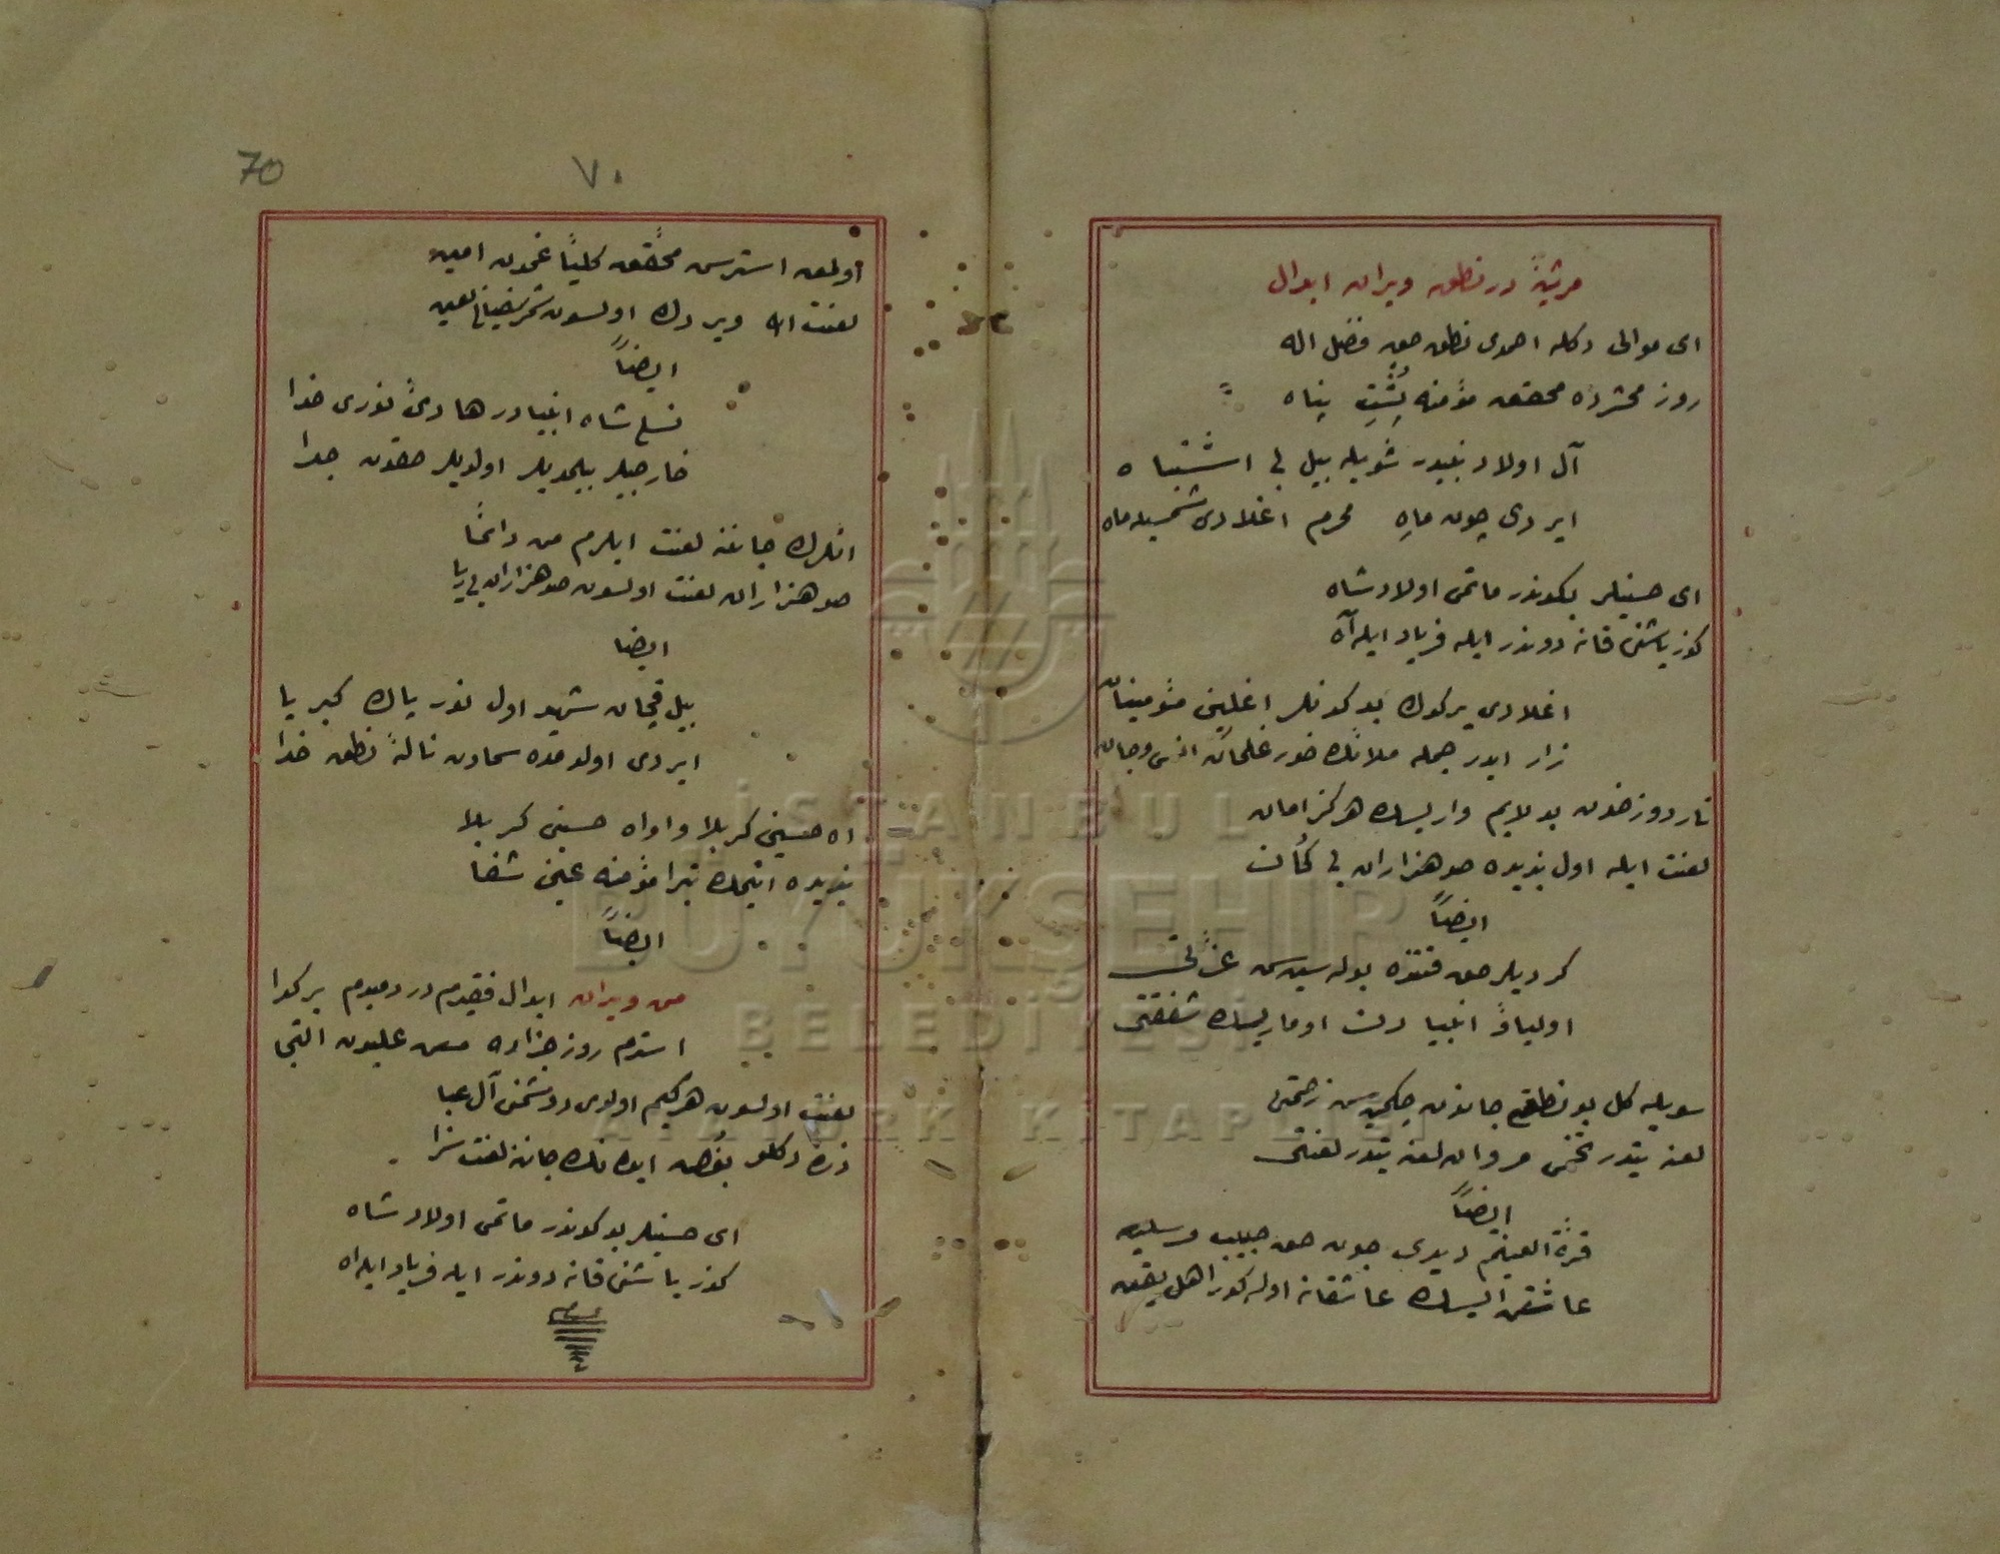 مرثیهٔ در نطق ویران ابدال
ای موالی دكله احمدی نطق حق فضل اله
روز محشرده محقق مؤمنه پشت پناه
آل اولاد نبیدر شویله بیل بی اشتباه
ایردی چون ماه محرم اغلادی شمسیله ماه
ای حسینیلر بكوندر ماتمی اولاد شاه
كوز یاشنی قانه دوندر ایله فریاد ایله آه
اغلادی یر كوك بو كونلر اغلین مؤمینان
زار ایدر جمله ملائك حور غلمان انس و جان
نار دوزخدن بولایم دار یسك هركز امان
لعنت ایله اول یزیده صد هزاران بی كمان
ایضاً
كردیلر حق قتنده بوله سین سن عزتی
اولیا و انبیا دن اومار یسك شفقتی
سویله كل بو نطق جاندن چكمه سن زحمتی
لعنه یتدر تخمی مروان لعنه یتدر لعنتی
ایضاً
قرة العینم دیدی چون حق حبیب مرسلین
عاشق ایسك عاشقانه اوله كور اهل یقین
اولمق استرسن محقق كلیاً غمدن امین
لعنت اولسون لعین
ایضاً
نسل شاه انبیادر هادی نوری خدا
خارجیلر بیلمدیلر اولدیلر حقدن جدا
انلرك جاننه لعنت ایلرم من دائما
صد هزاران لعنت اولسون صد هزاران بی ریا
ایضا
بیل قچان شهید اول نور پاك كبریا
ایردی اولدمده سمادن نالهٔ نطق خدا
اه حسینی كربلا و اواه حسینی كربلا
یزیده ایتمك تبرا مؤمنه عین شفا
ایضاً
من ویران ابدال فقیرم دردمندم بر كدا
استرم روز جزاده من علیدن التجا
لعنت اولسون هر كیم اولدی دوشمن آل عبا
ذره دكلو بغض ایدنك جاننه لعنت سزا
ای حسینیلر بو كوندر ماتمی اولاد شاه
كوز یاشنی قانه دوندر ایله فریاد ایله اه
70
٧٠
İSTANBUL
BÜYÜKŞEHİR
BELEDİYESİ
ATATÜRK KİTAPLIĞI